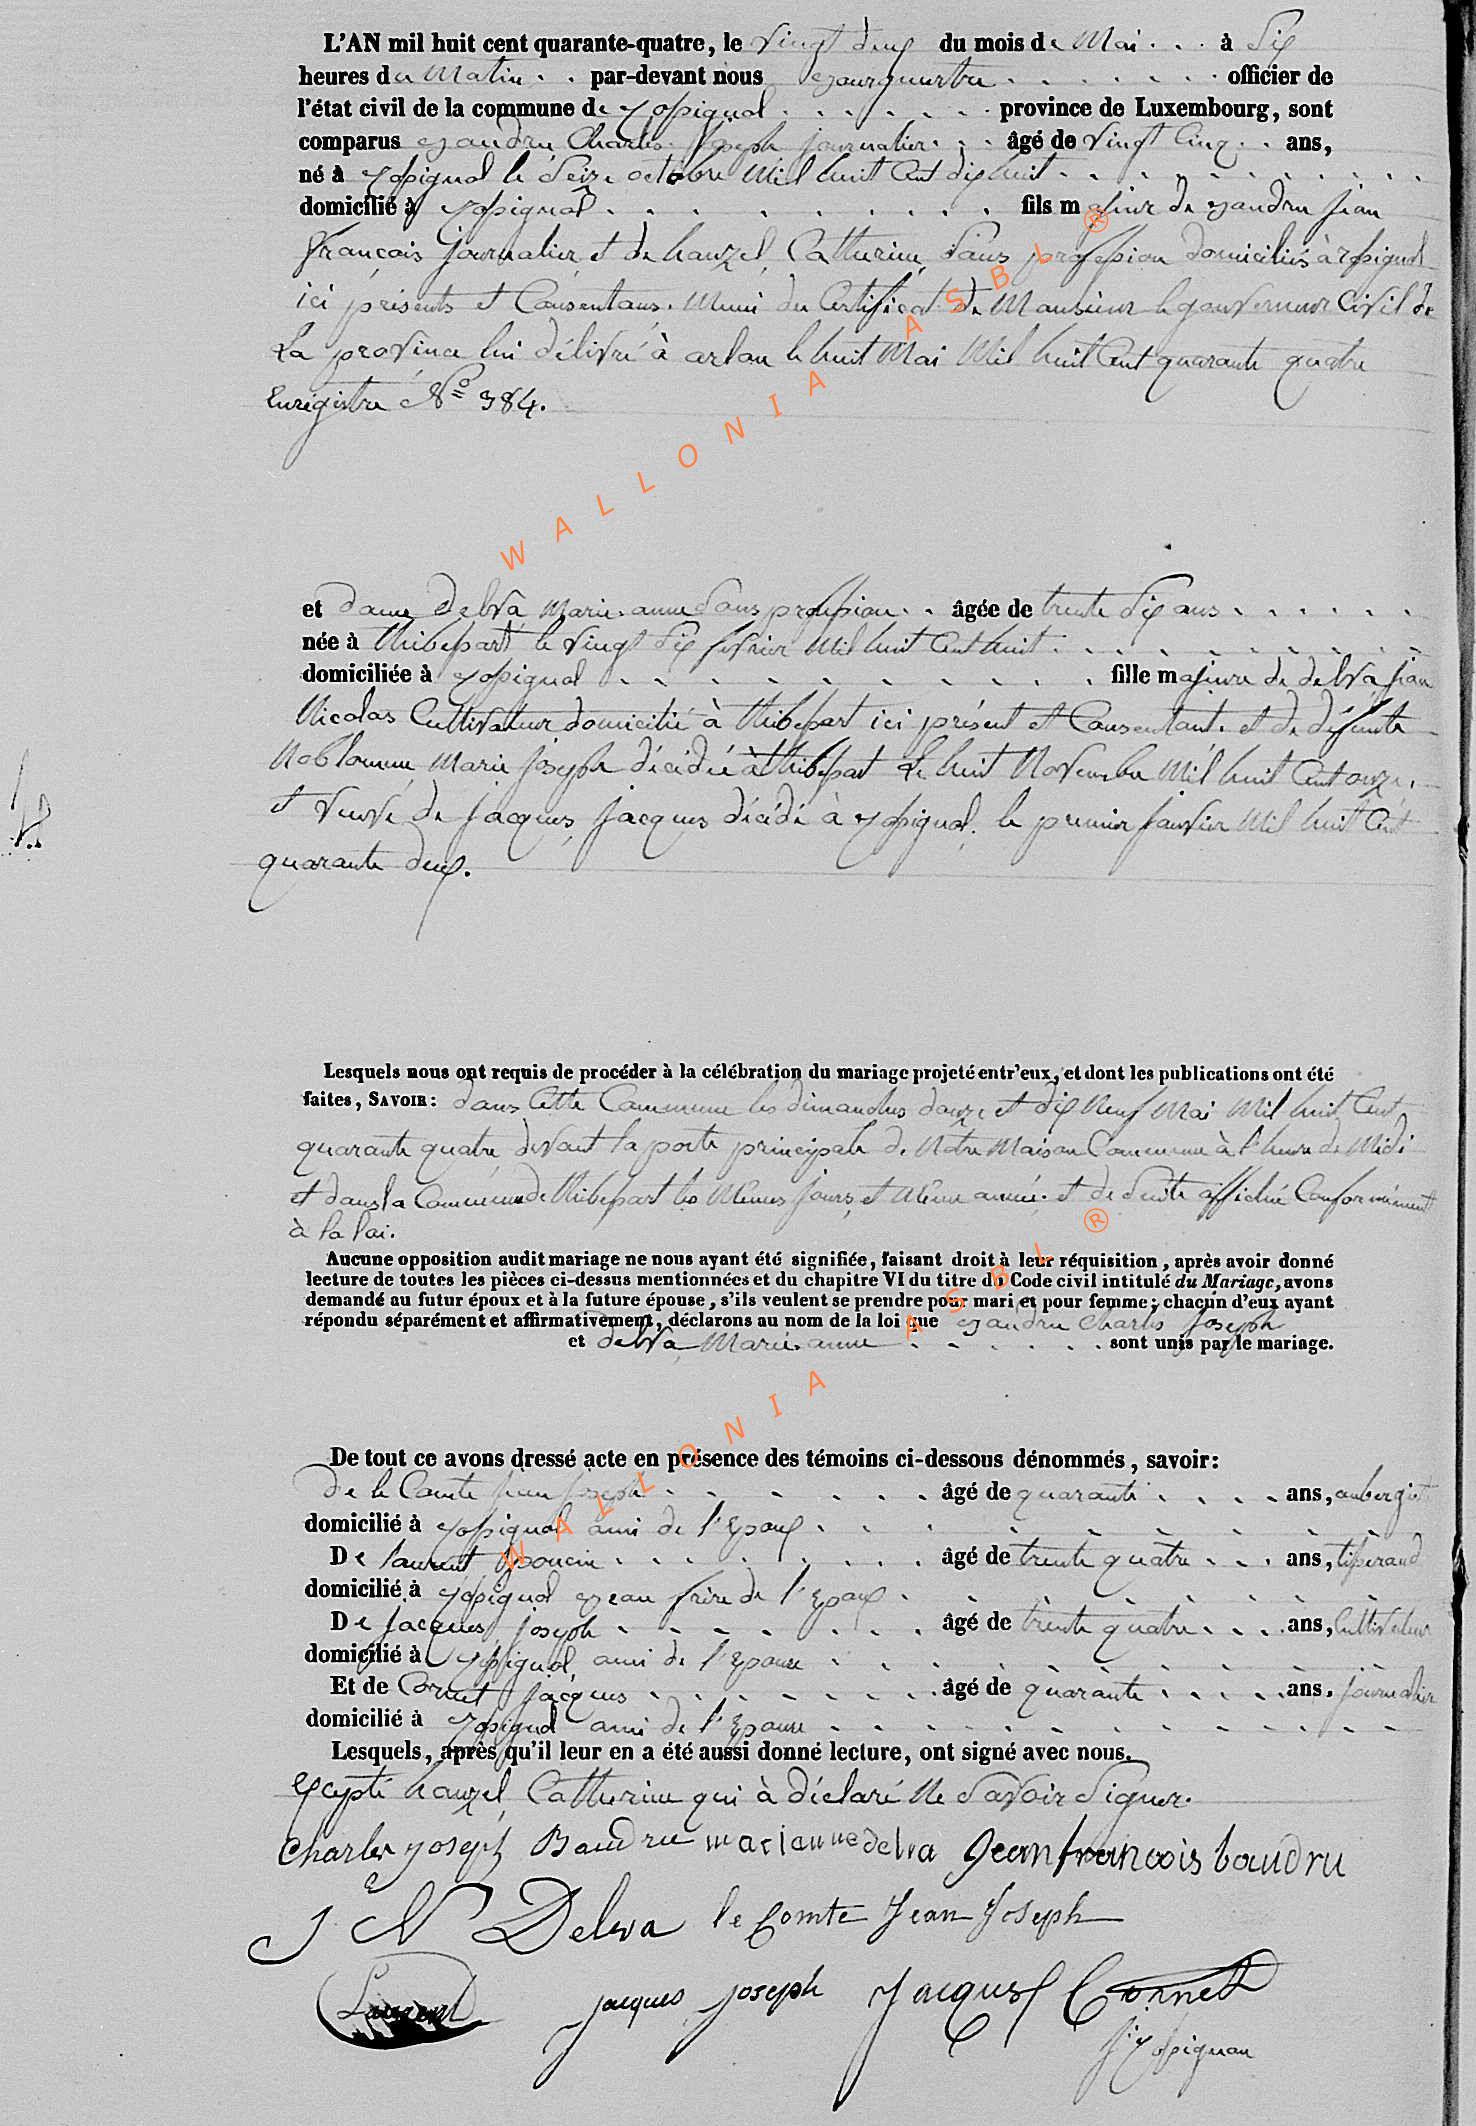 L'AN mil huit cent quarante-quatre, le vingt deux du mois de Mai à Six
heures du Matin par-devant nous officier de
l'état civil de la commune de province de Luxembourg, sont
comparus Baudru Charles Joseph journalier âgé de vingt Cinq ans,
né à le Seize octobre Mil huit Cent dix huit
domicilié à fils majeur de Baudru Jean
François journalier et de hauzel Catherine Sans profession domiciliés à
ici présents et Consentans. Muni du Certificat de Monsieur le gouverneur Civil de
La province lui délivré à arlon le huit Mai Mil huit Cent quarante quatre
Enrégistré N° 984.
et dame Delva Marie-anne Sans profession âgée de trente Six ans
née à thibessart le vingt Six février Mil huit Cent huit
domiciliée à fille majeure de delva jean
Nicolas Cultivateur domicilié à thibessart ici présent et Consentant. et de défunte
Noblomme Marie joseph décédée à thibessart Le huit Novembre Mil huit Cent onze.
et veuve de jacques jacques décédé à le premier janvier Mil huit Cent
quarante deux.
Lesquels nous ont requis de procéder à la célébration du mariage projeté entr'eux, et dont les publications ont été
faites, SAVOIR: dans Cette Commune les dimanches douze et dix Neuf Mai Mil huit Cent
quarante quatre devant la porte principale de Notre Maison Commune à l'heure de Midi
et dans la Commune de thibessart les Mêmes jours et Même année. et de Suite affiché Conformément
à la loi.
Aucune opposition audit mariage ne nous ayant été signifiée, faisant droit à leur réquisition, après avoir donné
lecture de toutes les pièces ci-dessus mentionnées et du chapitre VI du titre du Code civil intitulé du Mariage, avons
demandé au futur époux et à la future épouse, s'ils veulent se prendre pour mari et pour femme; chacun d'eux ayant
répondu séparément et affirmativement, déclarons au nom de la loi que Baudru Charles Joseph
et delva Marie-anne sont unis par le mariage.
De tout ce avons dressé acte en présence des témoins ci-dessous dénommés, savoir:
De le Comte jean joseph âgé de quarante ans, aubergiste
domicilié à ami de l'Epoux
De laurent âgé de trente quatre ans, tisserand
domicilié à Beau frère de l'Epoux
De jacques joseph âgé de trente quatre ans, Cultivateur
domicilié à ami de l'Epouse
Et de Cornet jacques âgé de quarante ans. journalier
domicilié à ami de l'Epouse
Lesquels, après qu'il leur en a été aussi donné lecture, ont signé avec nous.
Excepté hauzel Catherine qui à déclaré Ne Savoir Signer.
Charles joseph Baudru marianne delva Jean francois baudru
J N Delva le Comte Jean Joseph
Laurent jacques joseph Jacques Cornet
WALLONIA ASBL ®
WALLONIA ASBL ®